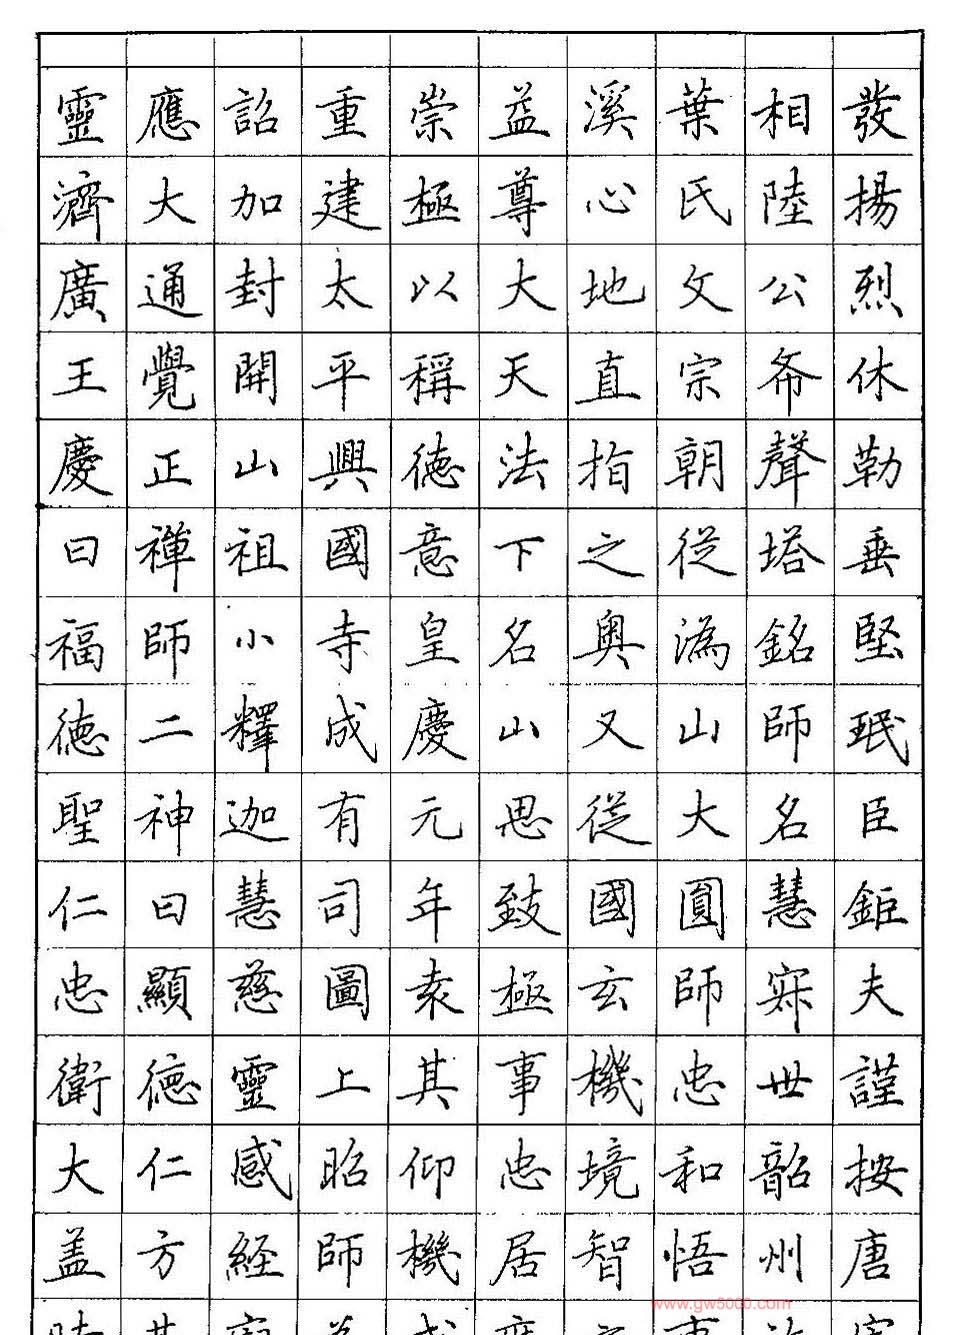 發揚烈休勒垂堅珉臣鉅夫謹按唐
相陸公希聲塔銘師名慧寂世韶州
葉氏文宗朝從溈山大圓師忠和悟
溪心地直指之奧又從國玄機境智
益尊大天法下名山思致極事忠居
崇極以稱德意皇慶元年袁其仰機
重建太平興國寺成有司圖上昭師
詔加封開山祖小釋迦慧慈靈感經
應大通覺正禪師二神曰顯德仁方
靈濟廣王慶曰福德聖仁忠衛大蓋
www.gw5000.com